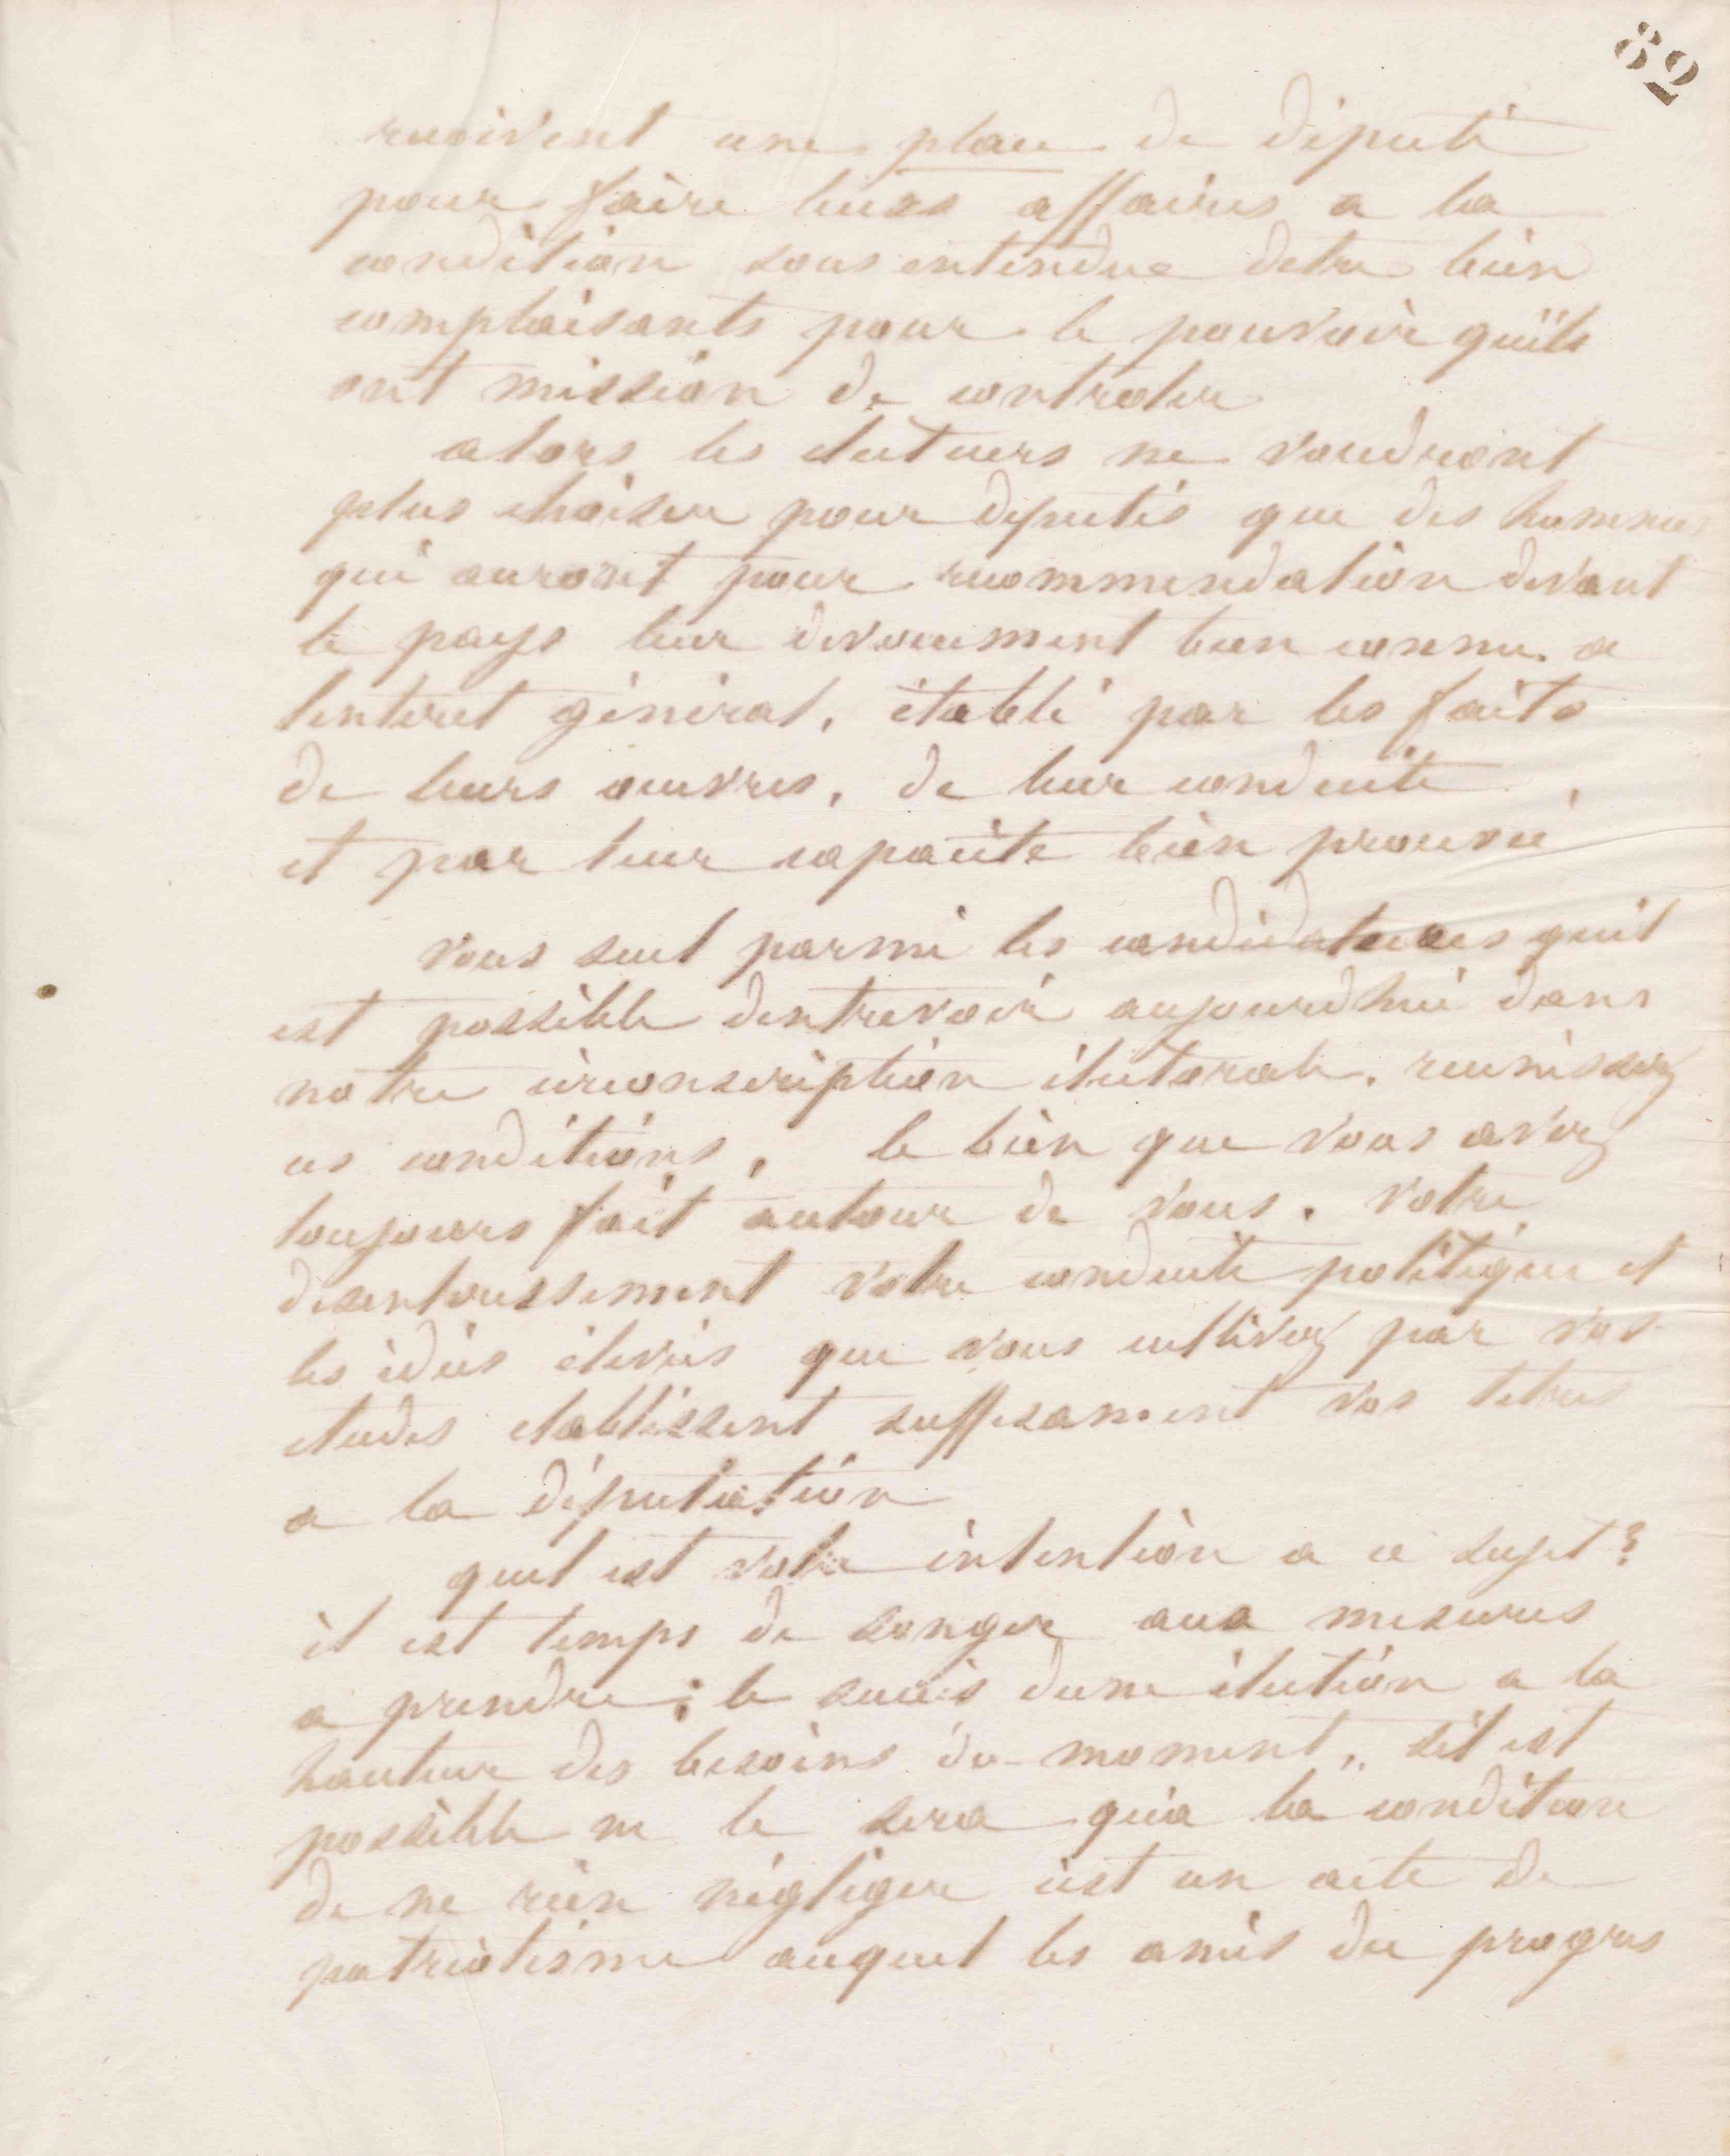 82
recoivent une place de député
pour faire leurs affaires a la
condition sous entendue detre bien
complaisants pour le pouvoir quils
ont mission de controler
alors les electeurs ne voudront
plus choisir pour deputés que des hommes
qui auront pour recommendation devant
le pays leur devouement bien connu a
linteret général, établi par les faits
de leurs oeuvres, de leur conduite,
et par leur capacite bien prouvée
vous seul parmi les candidatures quil
est possible dentrevoir aujourdhui dans
notre circonscription électorale. reunissez
ces conditions, le bien que vous avez
toujours fait autour de vous. votre
desinteressement votre conduite politique et
les idées élevées que vous cultivez par vos
etudes etablissent suffisament vos titres
a la députation
quel est votre intention a ce sujet?
il est temps de songer aux mesures
a prendre; le succès dune élection a la
hauteur des besoins du moment, sil est
possible ne le sera qua la condition
de ne rien négliger cest un acte de
patriotisme auquel les amis du progres